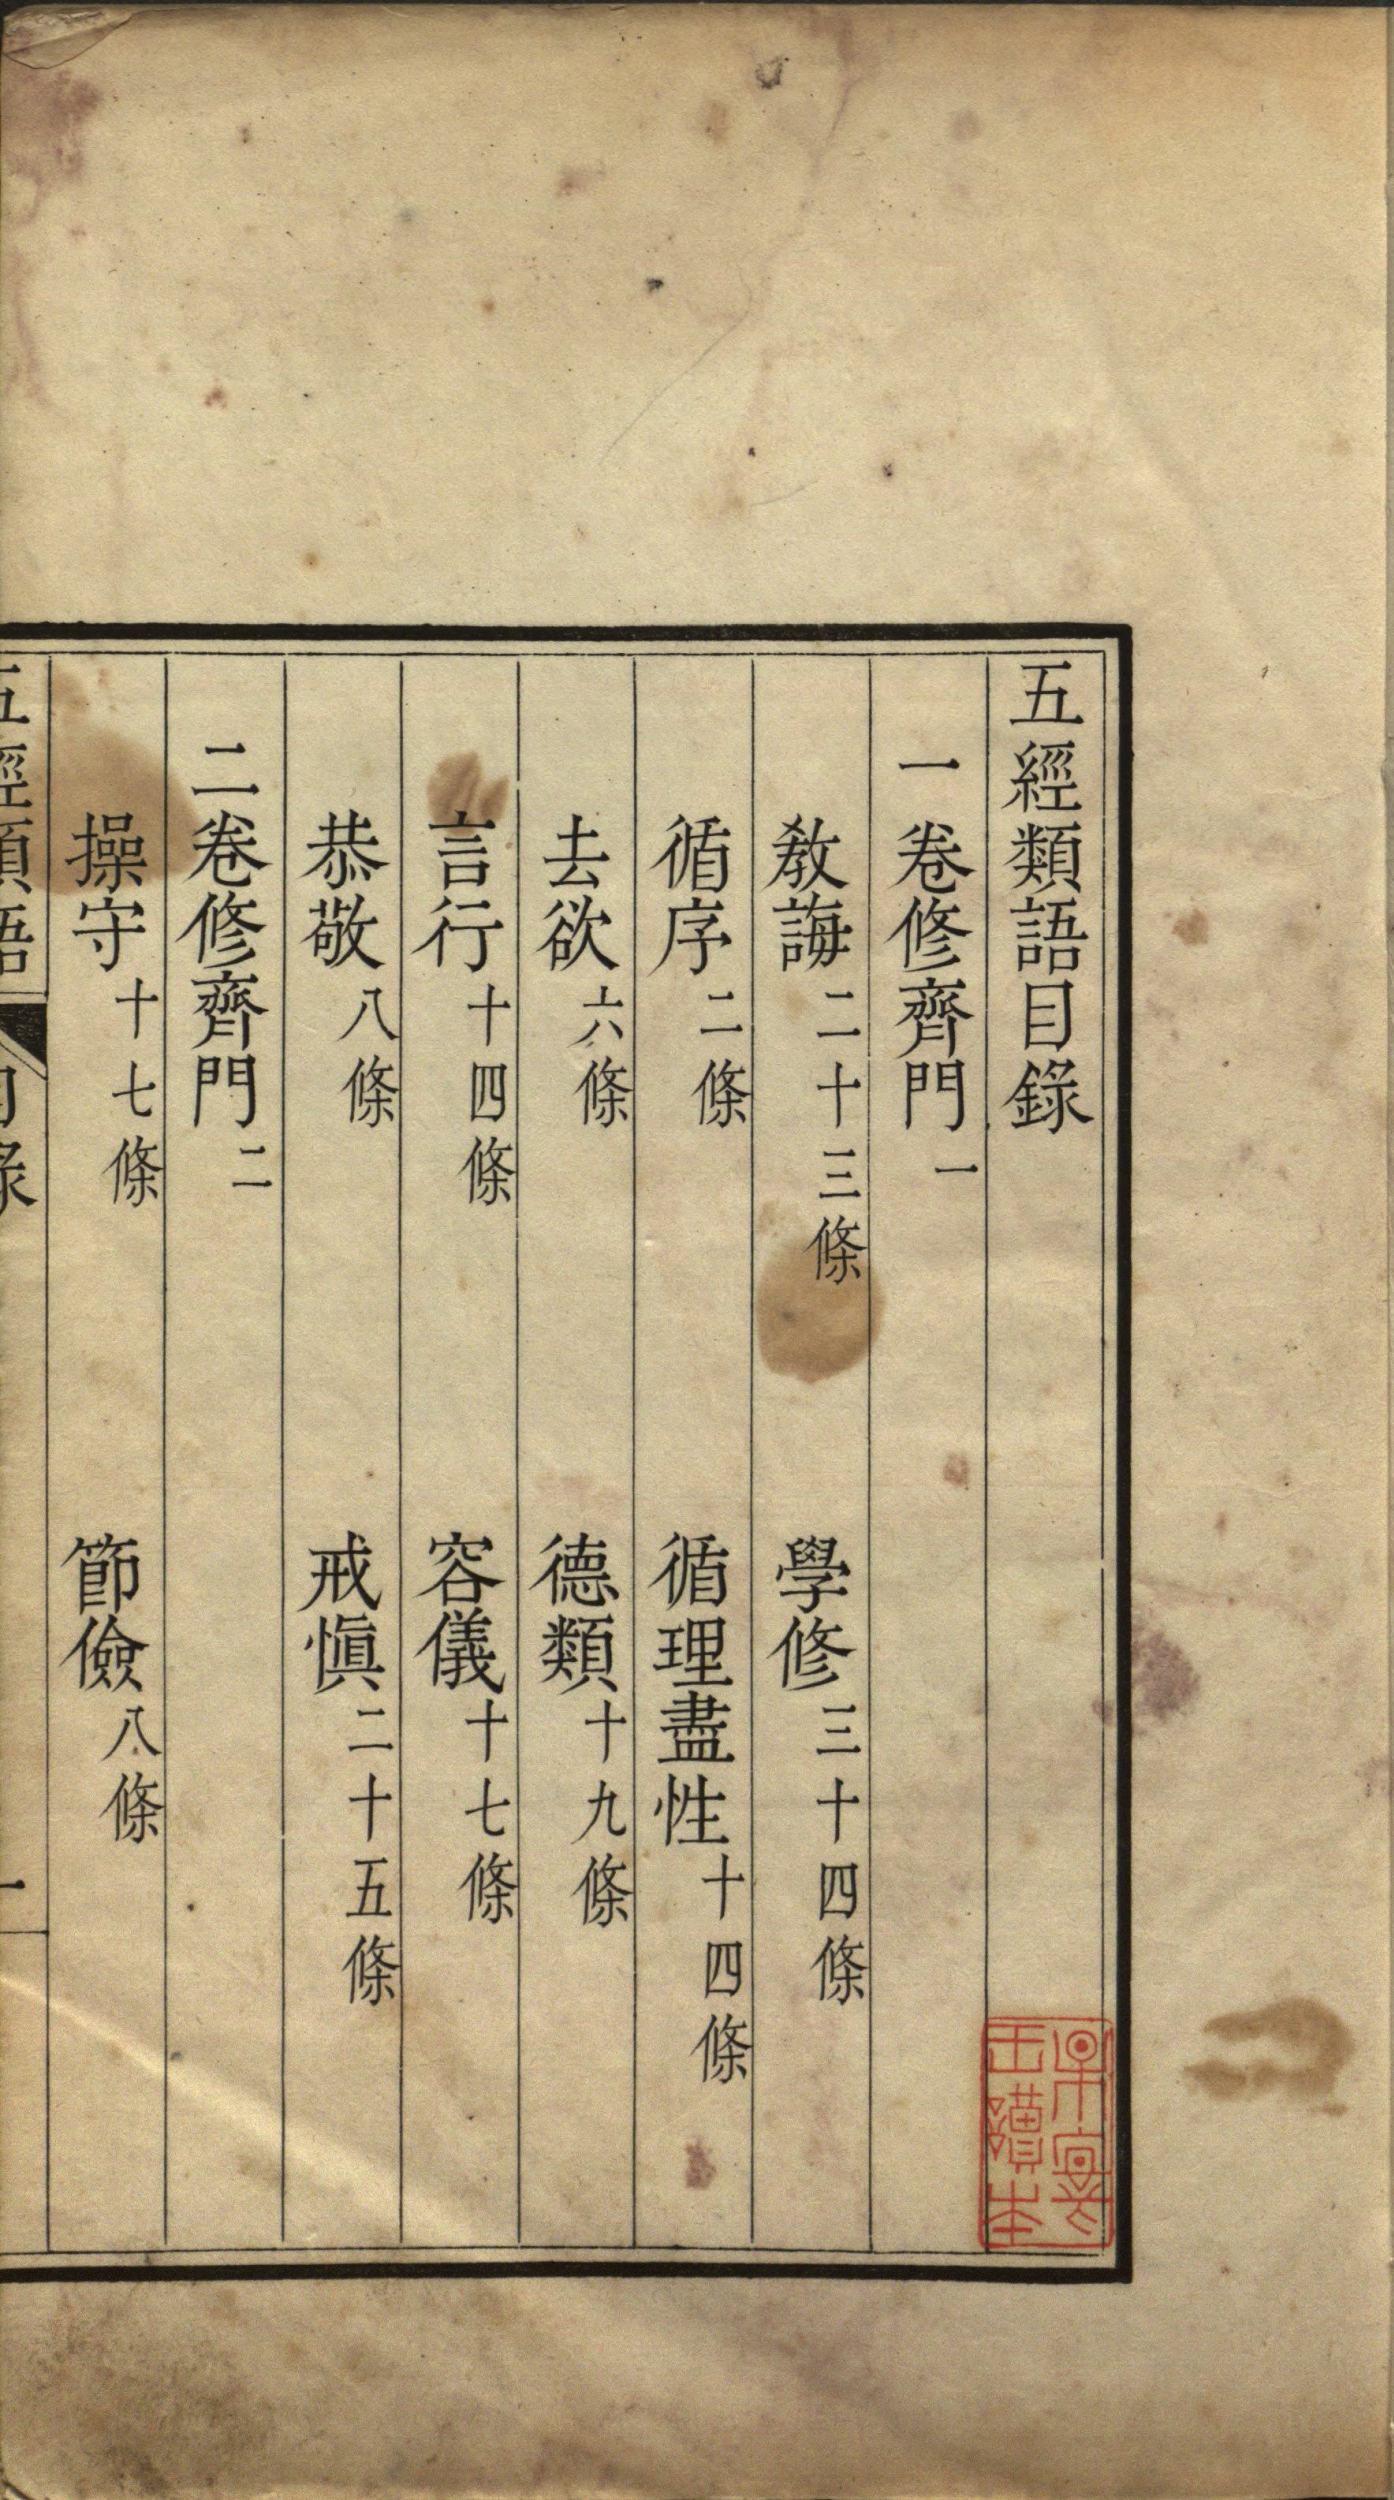 五經類語目錄
一卷修齊門一
教誨二十三條　學修三十四條
循序二條　循理盡性十四條
去欲六條　德類十九條
言行十四條　容儀十七條
恭敬八條　戒愼二十五條
二卷修齊門二
操守十七條　節儉八條
五經類語　目錄　一